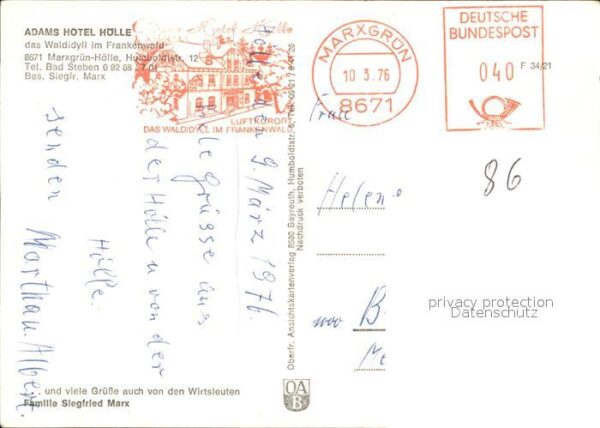 ADAMS HOTEL HÖLLE
das Waldidyll im Frankenwald
8671 Marxgrün-Hölle, Humboldtstr. 12
Tel. Bad Steben 0 92 88
Bes. Siegfr. Marx
LUFTKURORT
DAS WALDIDYLL IM FRANKENWALD
MARXGRÜN
10.3.76
8671
DEUTSCHE
BUNDESPOST
040
F 34/21
Hölle den 9. März 1976.
Viele Grüsse aus
der Hölle u von der
Hölle.
senden
Martha u. Albert.
Oberfr. Ansichtskartenverlag 8580 Bayreuth, Humboldtstr.
Nachdruck verboten
Frau
Helene
86
B
privacy protection
Datenschutz
... und viele Grüße auch von den Wirtsleuten
Familie Siegfried Marx
OAB